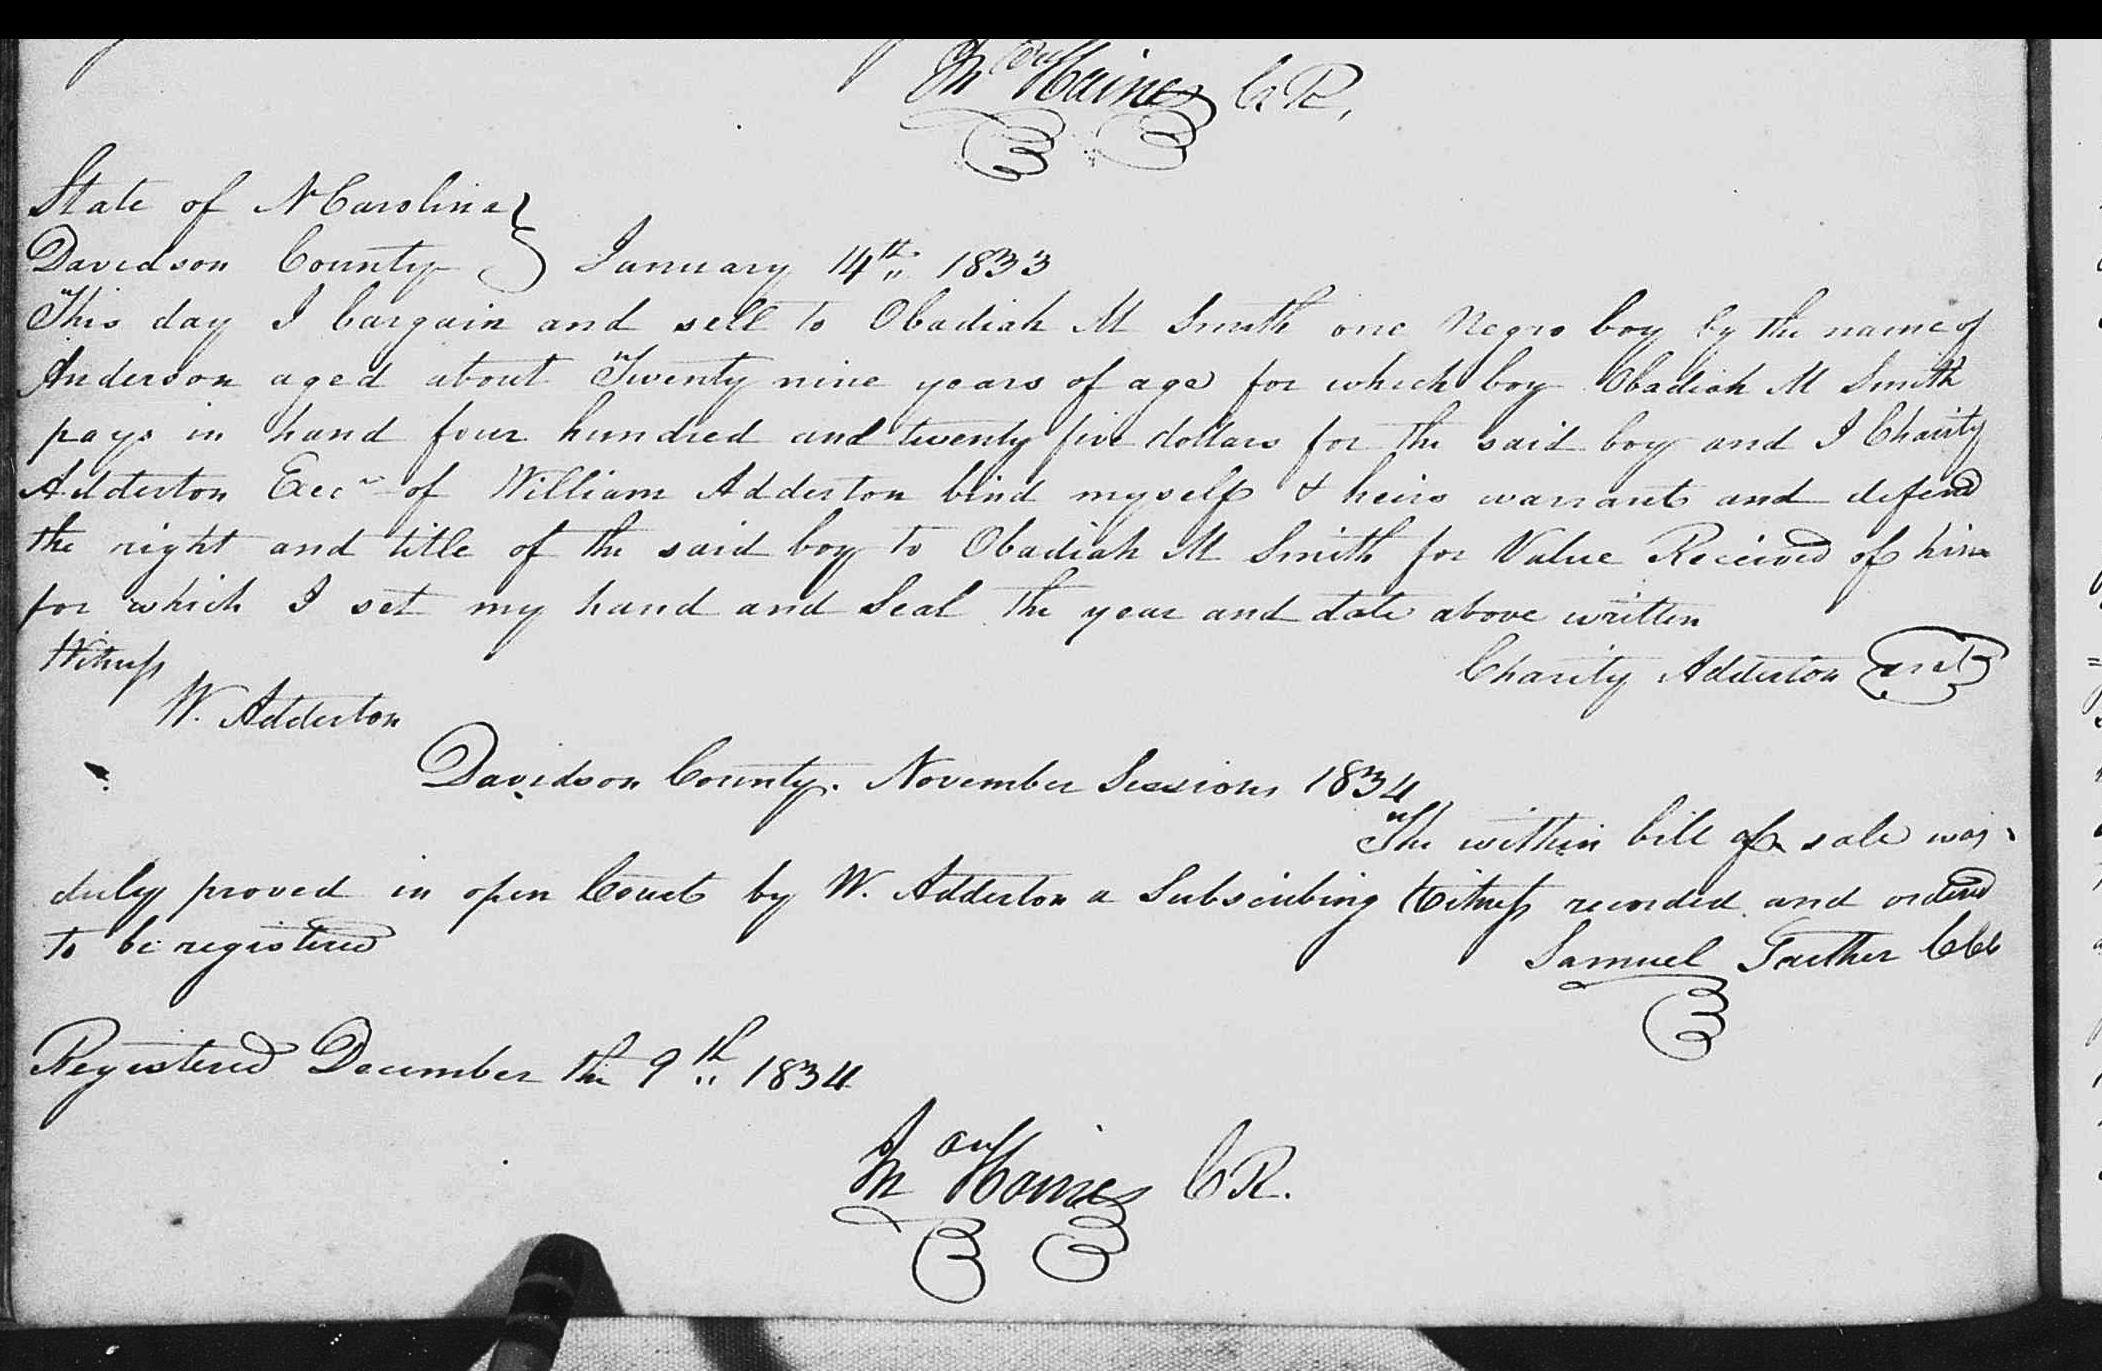 Haines C R,
State of N Carolina
Davidson County January 14th 1833
This day I bargain and sell to Obadiah M Smith one Negro boy by the name of
Anderson aged about Twenty nine years of age for which boy Obadiah M Smith
pays in hand four hundred and twenty five dollars for the said boy and I Charity
Adderton Exec of William Adderton bind myself & heirs warrant and defend
the right and title of the said boy to Obadiah M Smith for Value Received of him
for which I set my hand and Seal the year and date above written
Witness Charity Adderton seal
W. Adderton
Davidson County. November Sessions 1834
The within bill of sale was
duly proved in open Court by W. Adderton a Subscribing Witness recorded and ordered
to be registered
Samuel Gaither CCC
Registered December the 9th 1834
Haines C R.